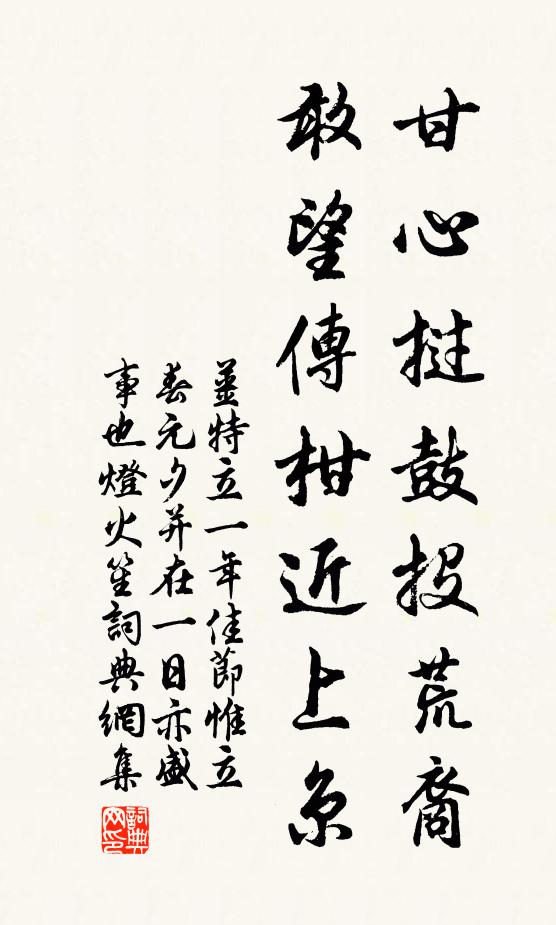 甘心鼓投荒裔
敢望傳柑近上京
薑特立一年佳節惟立
春元夕并在一日亦盛
事也燈火笙詞典網集
詞典
网印